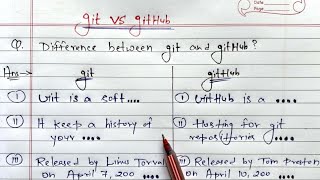 git vs gitHub
Date
Page
Q. Difference between git and gitHub?
Ans→ git gitHub
(I) Git is a soft.... (I) GitHub is a ....
(II) It keep a history of (II) Hosting for git
your .... repositories ....
(III) Released by Linus Torval (III) Released by Tom Preston
on April 7, 200 ... on April 10, 200 ....